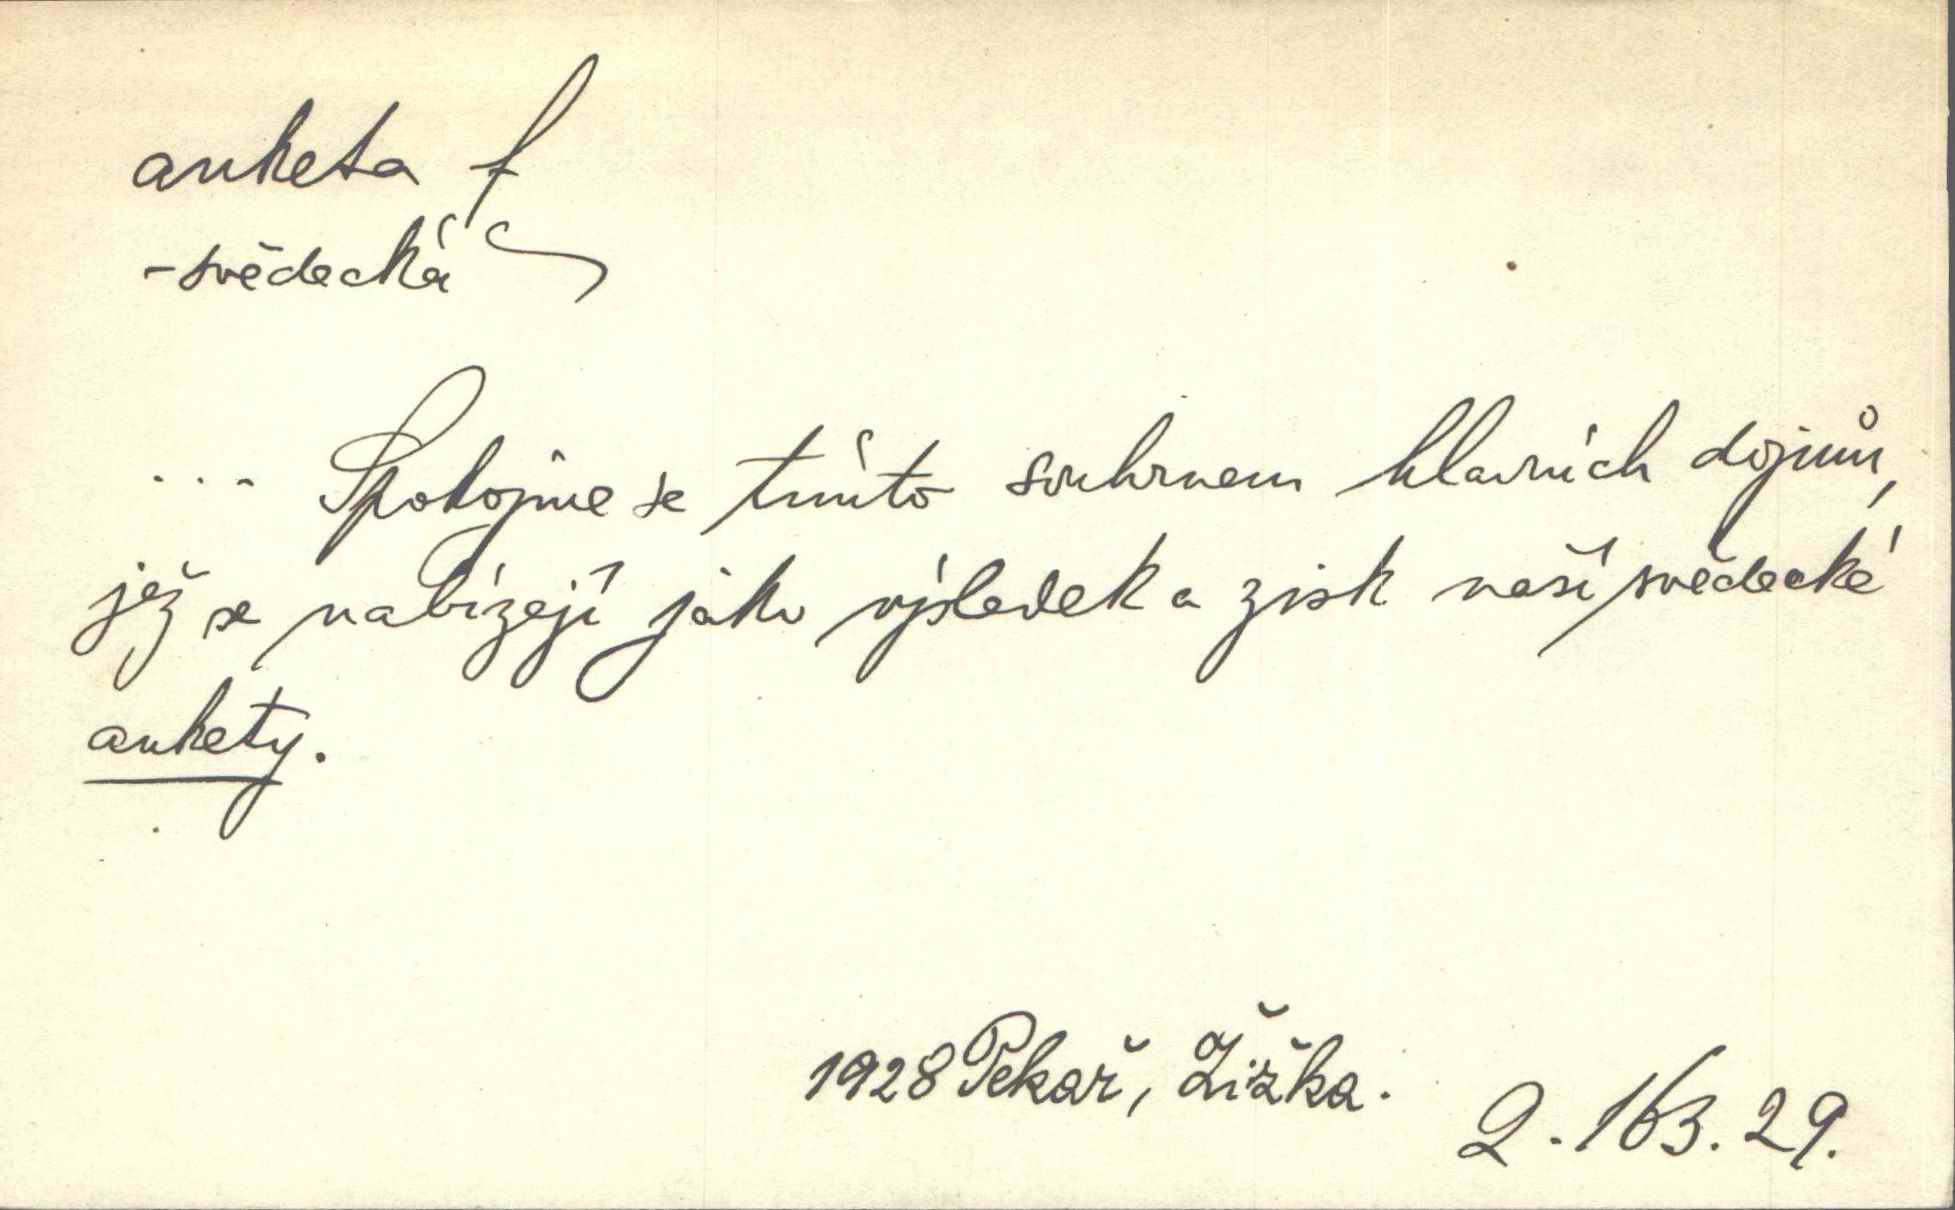 anketa f
-svědecká
... Spokojme se tímto souhrnem hlavních dojmů,
jež se nabízejí jako výsledek a zisk naší svědecké
ankety.
1928 Pekař, Žižka.
2.163.29.